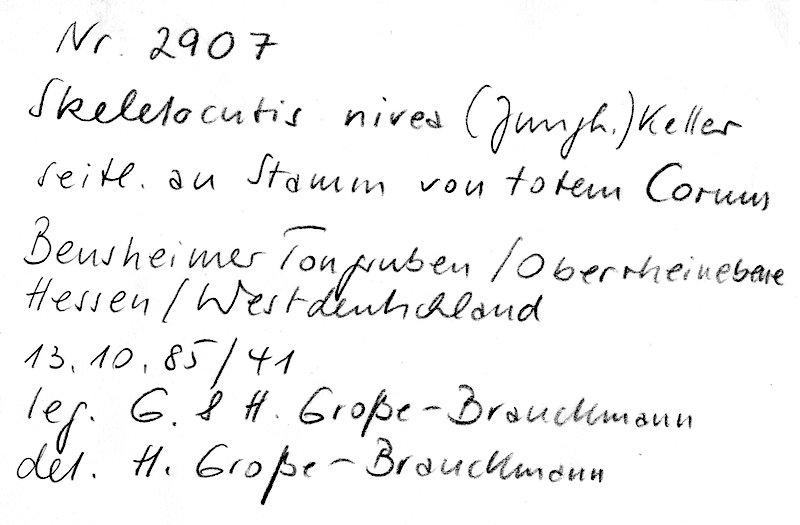 Nr. 2907
Skeletocutis nivea (Jungh.) Keller
seitl. an Stamm von totem Cornus
Bensheimer Tongruben / Oberrheinebene
Hessen / Westdeutschland
13.10.85/41
leg. G. & H. Große-Brauckmann
det. H. Große-Brauckmann